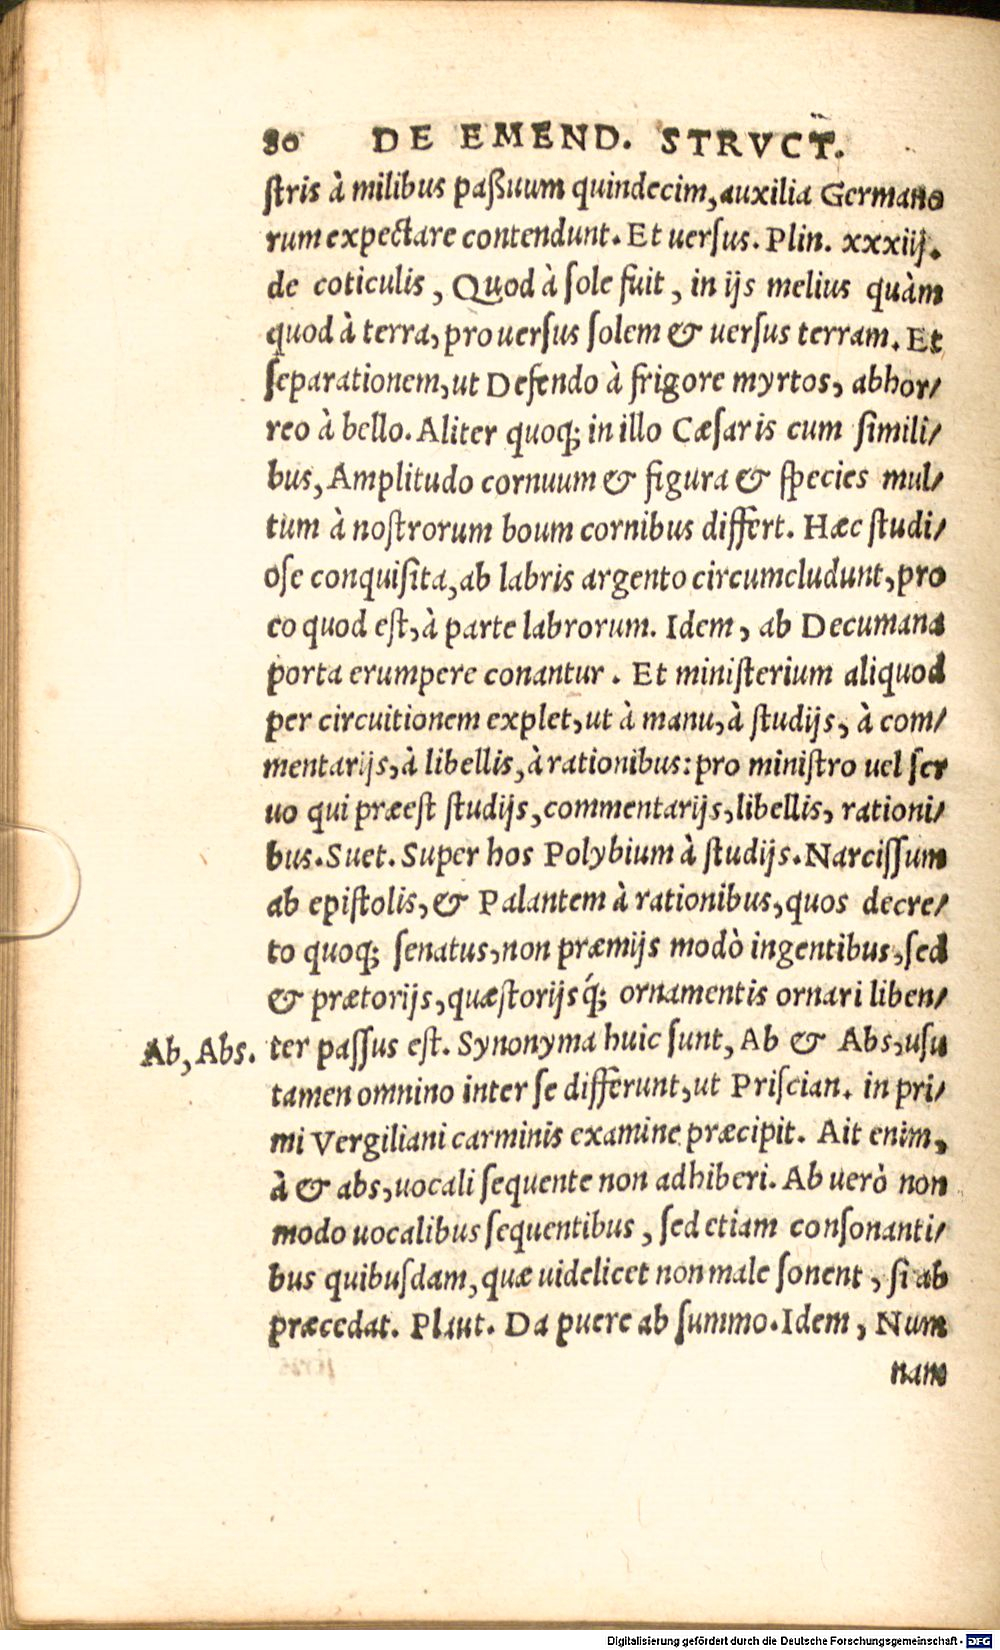 80 DE EMEND. STRVCT.
ſtris à milibus paßuum quindecim, auxilia Germano
rum expectare contendunt. Et uerſus. Plin. xxxiij.
de coticulis, Quod à ſole fuit, in ijs melius quàm
quod à terra, pro uerſus ſolem & uerſus terram. Et
ſeparationem, ut Defendo à frigore myrtos, abhor/
reo à bello. Aliter quoq; in illo Cæſaris cum ſimili/
bus, Amplitudo cornuum & figura & ſpecies mul/
tum à noſtrorum boum cornibus differt. Hæc ſtudi/
oſe conquiſita, ab labris argento circumcludunt, pro
eo quod eſt, à parte labrorum. Idem, ab Decumana
porta erumpere conantur. Et miniſterium aliquod
per circuitionem explet, ut à manu, à ſtudijs, à com/
mentarijs, à libellis, à rationibus: pro miniſtro uel ſer
uo qui præeſt ſtudijs, commentarijs, libellis, rationi/
bus. Suet. Super hos Polybium à ſtudijs. Narciſſum
ab epiſtolis, & Palantem à rationibus, quos decre/
to quoq; ſenatus, non præmijs modò ingentibus, ſed
& prætorijs, quæſtorijsq́; ornamentis ornari liben/
Ab, Abs. ter paſſus eſt. Synonyma huic ſunt, Ab & Abs, uſu
tamen omnino inter ſe differunt, ut Priſcian. in pri/
mi Vergiliani carminis examine præcipit. Ait enim,
à & abs, uocali ſequente non adhiberi. Ab uerò non
modo uocalibus ſequentibus, ſed etiam conſonanti/
bus quibuſdam, quæ uidelicet non male ſonent, ſi ab
præcedat. Plaut. Da puere ab ſummo. Idem, Num
nam
Digitalisierung gefördert durch die Deutsche Forschungsgemeinschaft - DFG